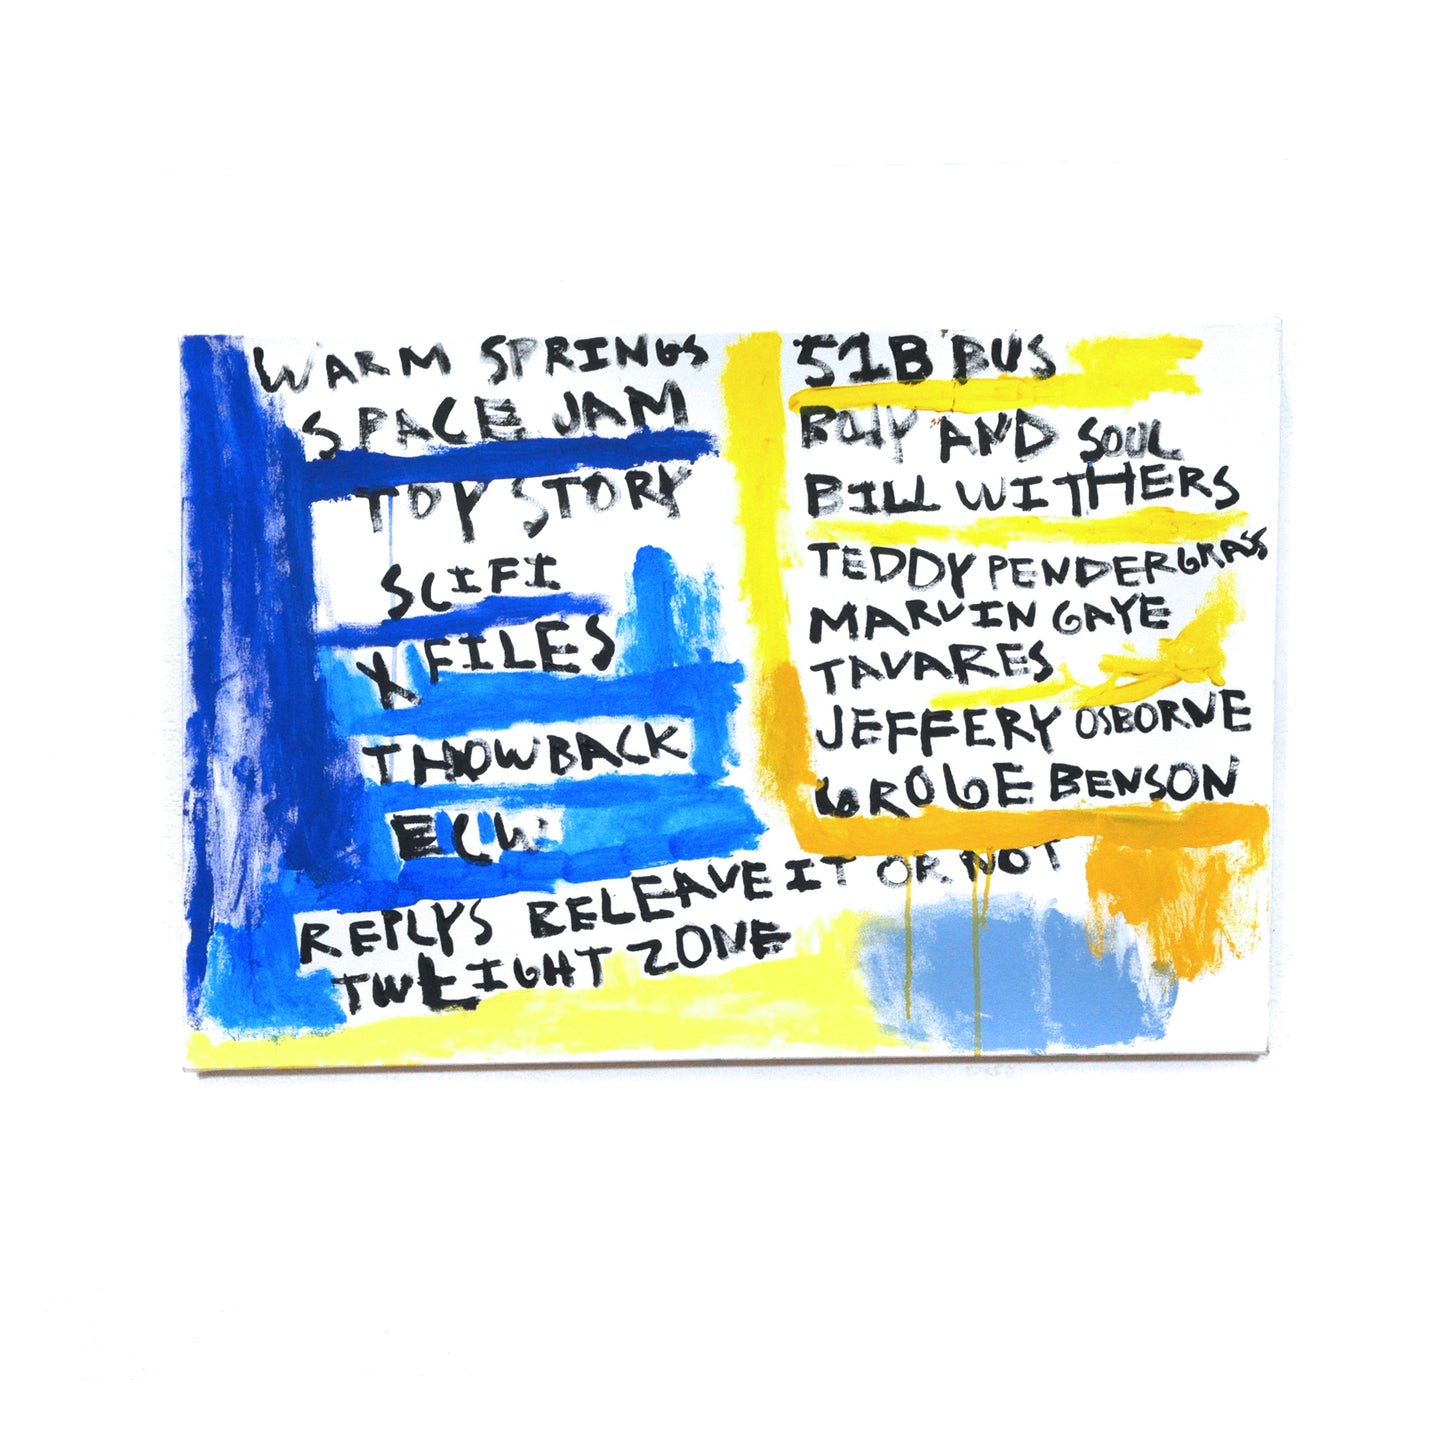 WARM SPRINGS
SPACE JAM
TOY STORY
SCIFI
X FILES
THOWBACK
ECW
REPLYS BELEAVE IT OR NOT
TWLIGHT ZONE
51B BUS
AND SOUL
BILL WITHERS
TEDDY PENDERGRASS
MARVIN GAYE
TAVARES
JEFFERY OSBORNE
GROGE BENSON